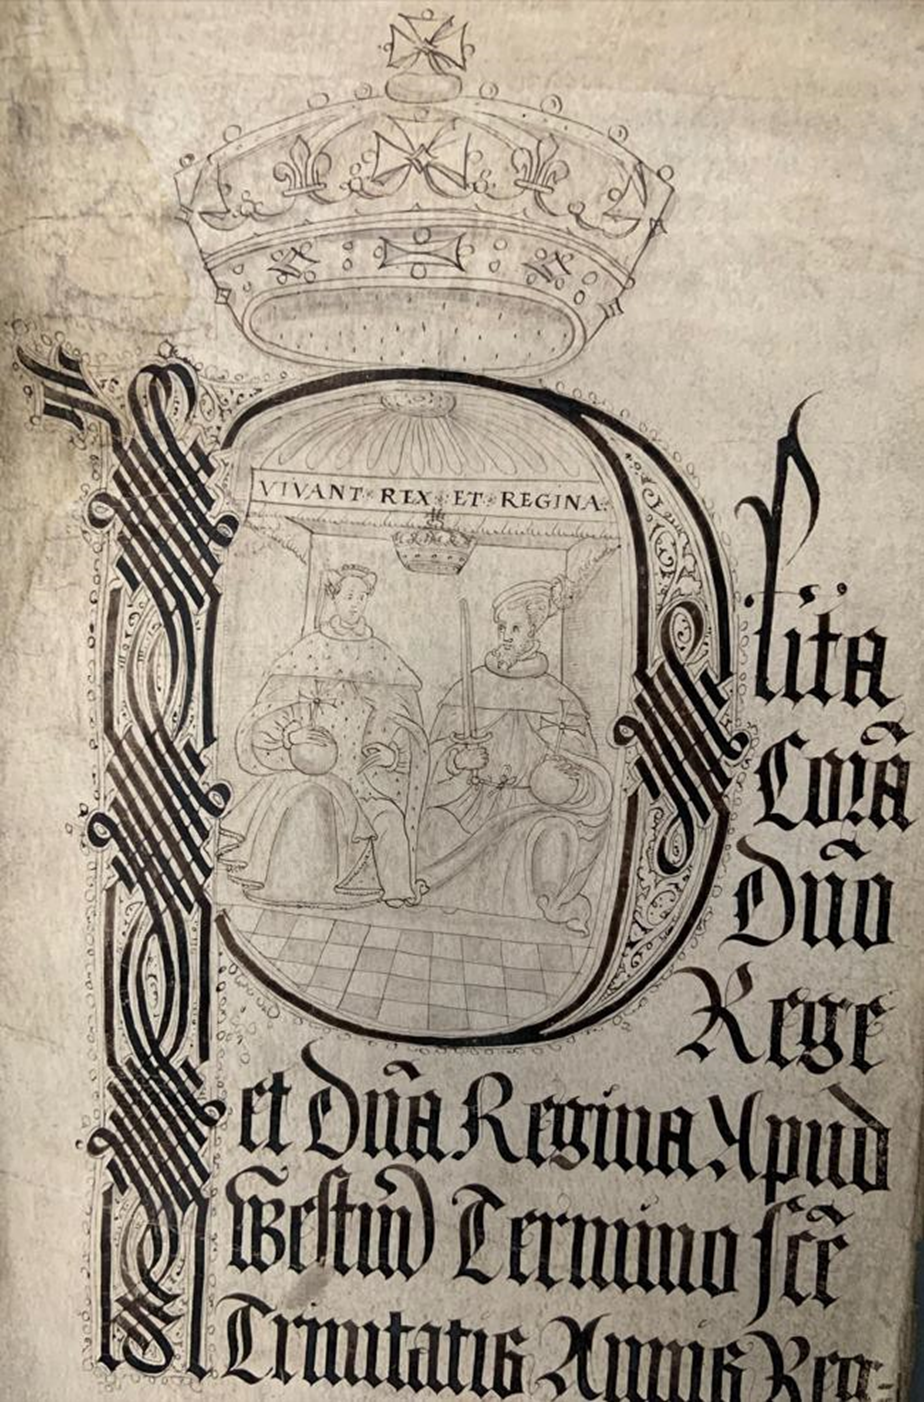 VIVANT REX ET REGINA
Plĩta
Corã
Dño
Rege
et Dña Regina Apud
Westm̃ Termino scẽ
Trinitatis Annis Reg-